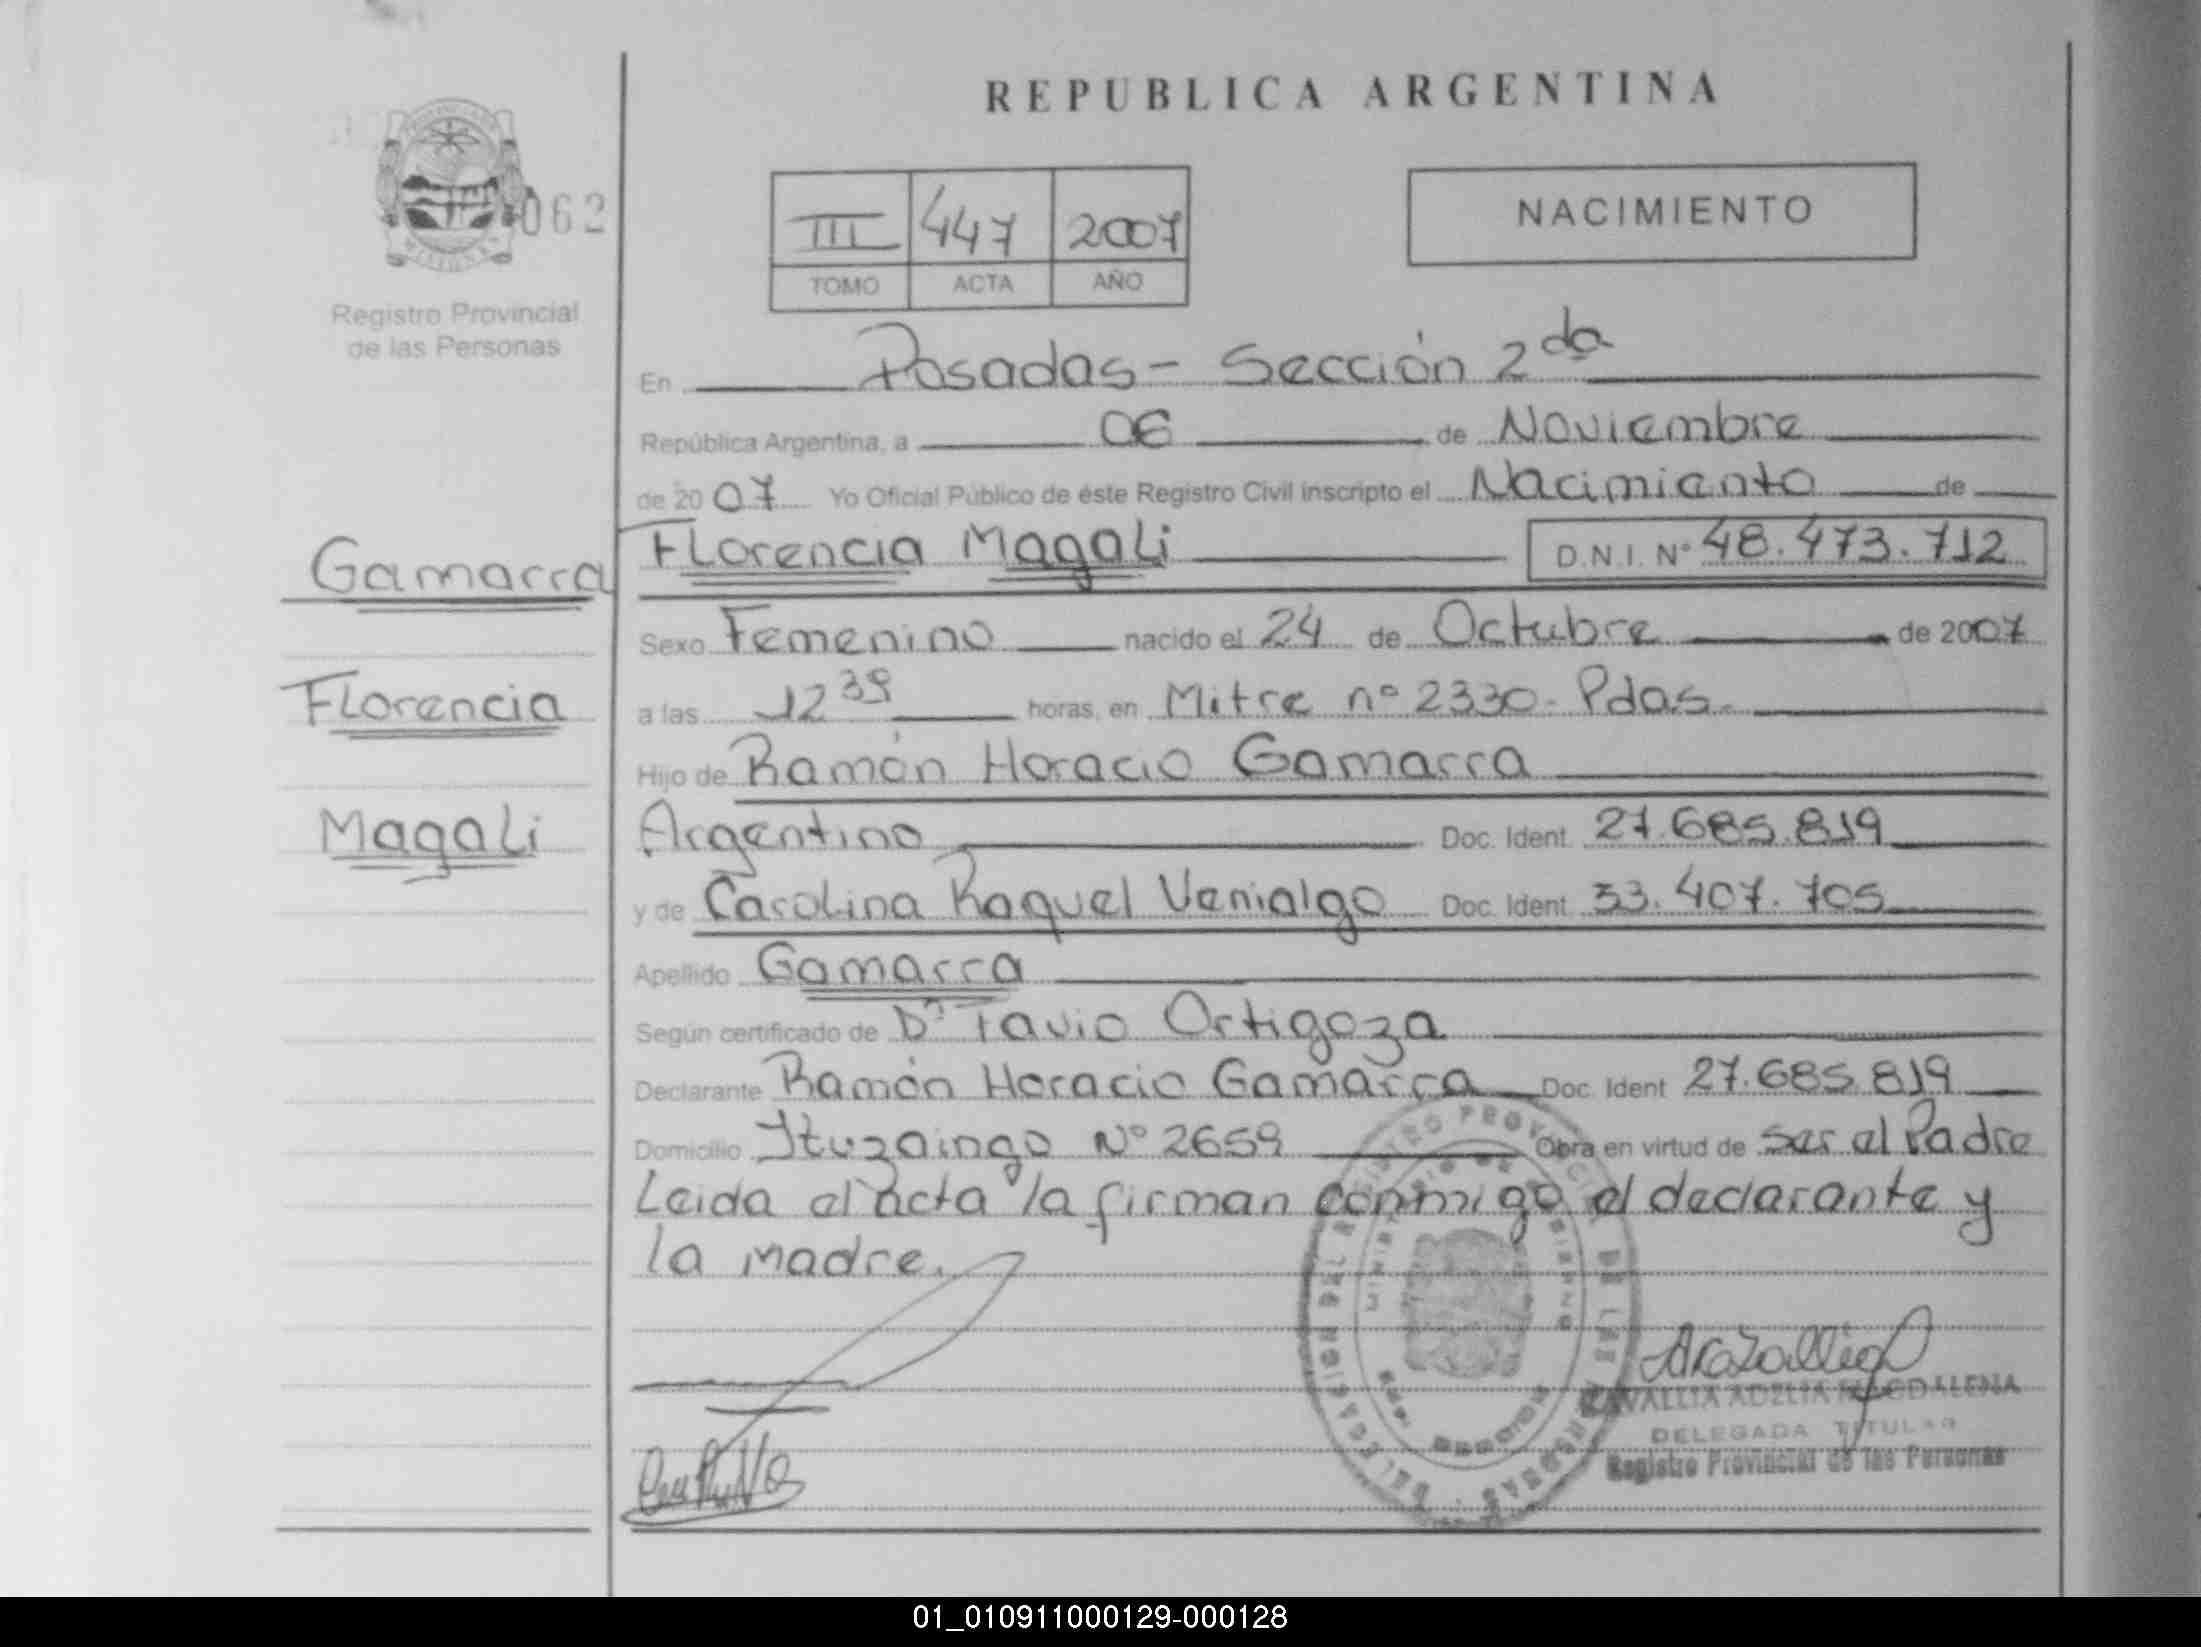 REPUBLICA ARGENTINA
062
Registro Provincial
de las Personas
III 447 2007
TOMO ACTA AÑO
NACIMIENTO
En Posadas - Sección 2da
República Argentina, a 06 de Noviembre
de 2007 Yo Oficial Público de éste Registro Civil inscripto el Nacimiento de
Gamarra
Florencia Magali D.N.I. Nº 48.473.712
Sexo Femenino nacido el 24 de Octubre de 2007
Florencia
a las 12 39 horas, en Mitre nº 2330 - Pdas.
Hijo de Ramón Horacio Gamarra
Magali
Argentino Doc. Ident. 27.685.819
y de Carolina Raquel Venialgo Doc. Ident. 33.407.705
Apellido Gamarra
Según certificado de Dr Tavio Ortigoza
Declarante Ramón Horacio Gamarra Doc. Ident 27.685.819
Domicilio Ituzaingo Nº 2659 Obra en virtud de ser el Padre
Leida el acta la firman conmigo el declarante y
la madre.
DELEGACION DEL REGISTRO PROVINCIAL DE LAS PERSONAS
ADELIA MAGDALENA
DELEGADA TITULAR
Registro Provincial de las Personas
01_010911000129-000128